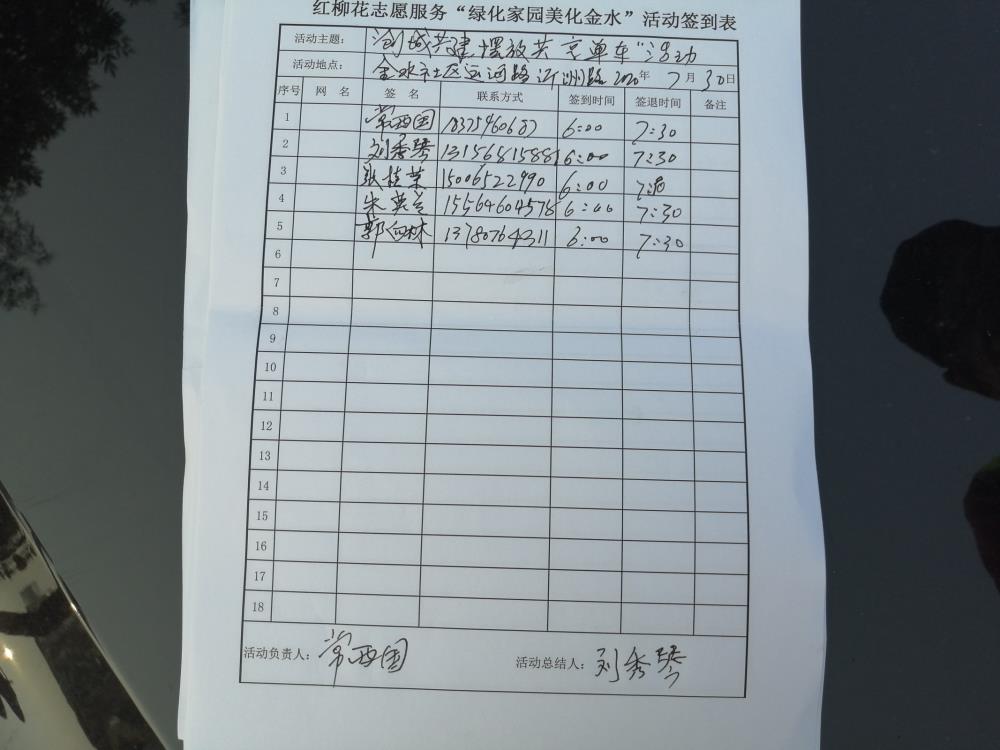 红柳花志愿服务“绿化家园美化金水”活动签到表
活动主题： 创城共建摆放共享单车"活动
活动地点： 金水社区运河路沂州路 2020年 7月30日
序号 网 名 签 名 联系方式 签到时间 签退时间 备注
1 常西国 6:00 7:30
2 刘秀琴 13156815881 6:00 7:30
3 张桂荣 15006522990 6:00
4 朱英兰 15564604578 6:00 7:30
5 郭向林 13780764311 6:00 7:30
6
7
8
9
10
11
12
13
14
15
16
17
18
活动负责人： 常西国 活动总结人： 刘秀琴